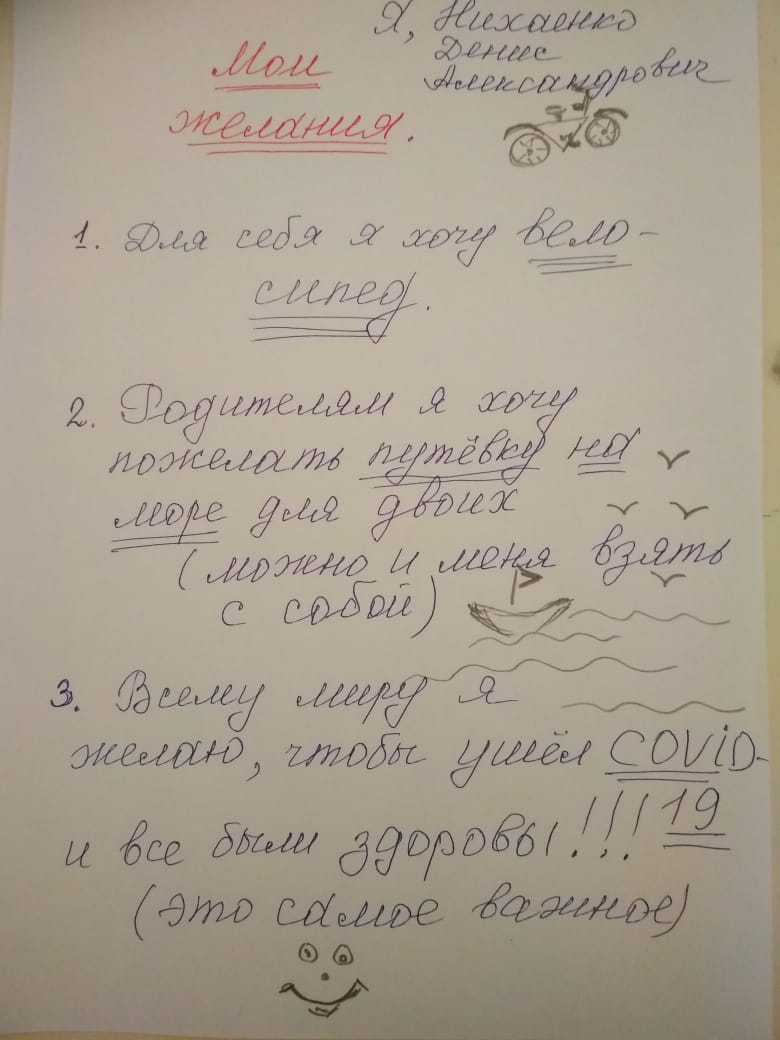 Я, Нихаенко
Денис
Александрович
Мои
желания.
1. Для себя я хочу вело-
сипед.
2. Родителям я хочу
пожелать путёвку на
море для двоих
(можно и меня взять
с собой)
3. Всему миру я
желаю, чтобы ушёл COViD-
19
и все были здоровы!!!
(это самое важное)